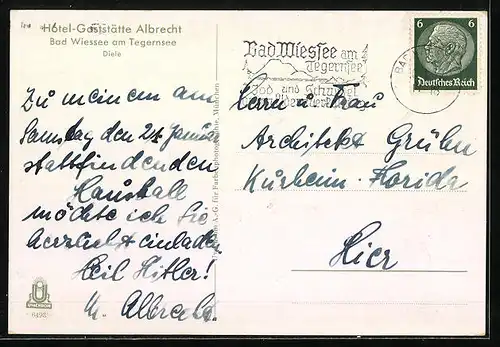 Hotel-Gaststätte Albrecht
Bad Wiessee am Tegernsee
Diele
Zu meinem am
Samstag den 21. Januar
stattfindenden
Hausball
möchte ich Sie
herzlichst einladen
Heil Hitler!
M. Albrecht.
6493
A.-G. für
München
Bad Wiessee am
Tegernsee
Jod und Schwefel
6 6
Deutsches Reich
BAD
Herrn u. Frau
Architekt Gruber
Kurheim-Florida
Hier